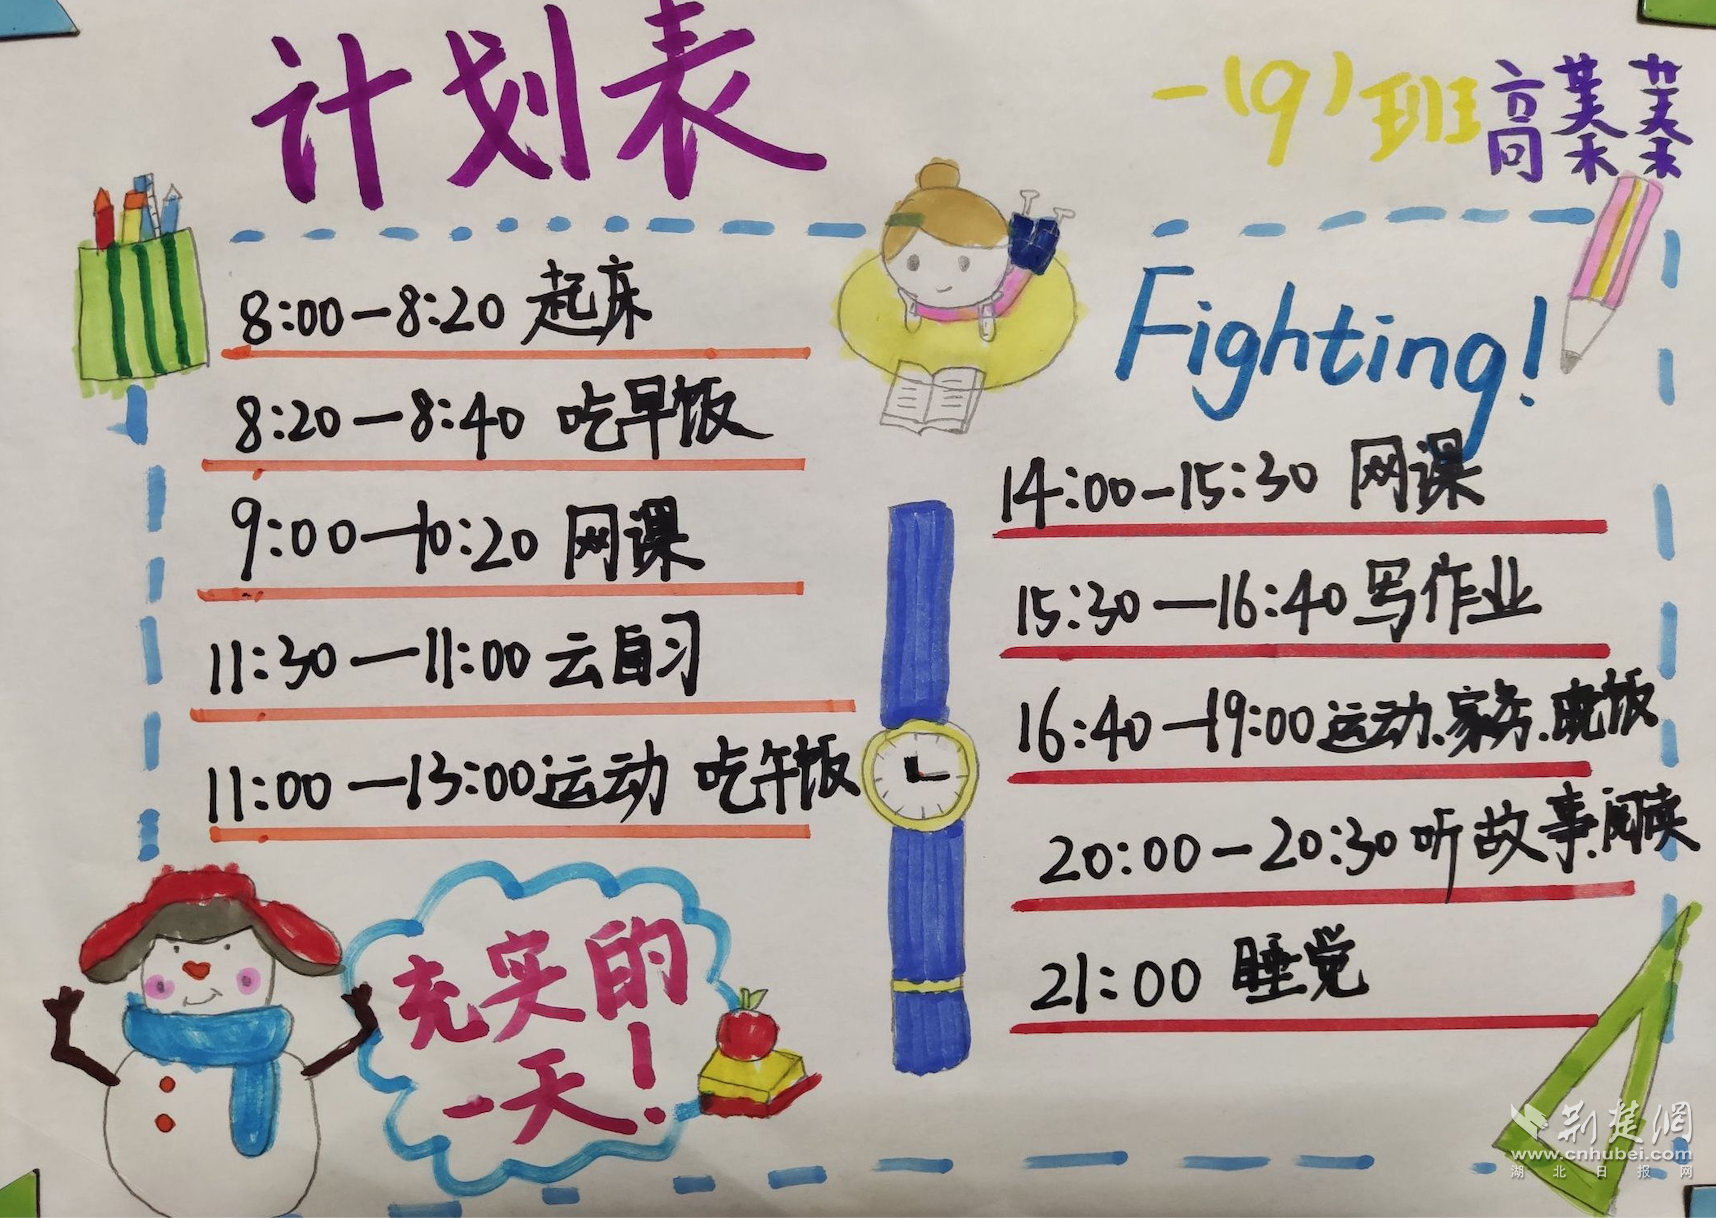 计划表
一(9)班 高蓁蓁
8:00—8:20 起床
8:20—8:40 吃早饭
9:00—10:20 网课
11:30—11:00 云自习
11:00—13:00 运动 吃午饭
充实的
一天!
Fighting!
14:00—15:30 网课
15:30—16:40 写作业
16:40—19:00 运动、家务、晚饭
20:00—20:30 听故事、阅读
21:00 睡觉
荆楚網
www.cnhubei.com
湖北日报网